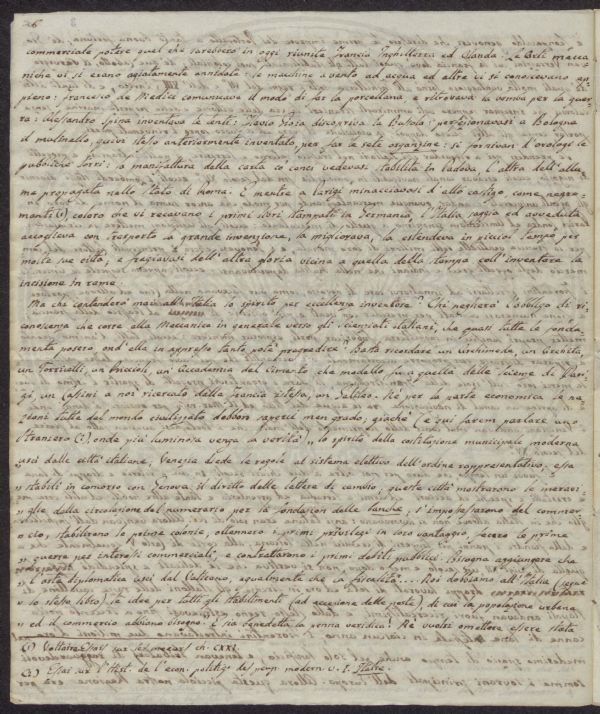 26
commerciale potere quel che sarebbero in oggi riunite Francia Inghilterra ed Olanda. Le Arti mecca
niche vi si erano agiatamente annidate: le machine a vento ad acqua ed altre vi si conoscevano ap
pieno: Francesco de Medici comunicava il modo di far la porcellana e ritrovava la bomba per la guer
ra: Alessandro Spina inventava le lenti: Flavio Gioia discopriva la Bussola: perfezionavasi a Bologna
il mulinello, quivi stesso anteriormente inventato, per far le sete organzine: si fornivan d'orologi le
pubbliche Torri: a manifattura della carta co' cenci vedevasi stabilita in Padova, l'altra dell'allu
me propagata nello stato di Roma. E mentre a Parigi minacciavasi d'alto castigo come negro-
manti (1) coloro che vi recavano i primi libri stampati in Germania, l'Italia saggia ed avveduta
accoglieva con trasporto la grande invenzione, la migliorava, la estendeva in picciol tempo per
molte sue città, e fregiavasi dell'altra gloria vicina a quella della stampa coll'inventare la
incisione in rame.
Ma che contenderà mai all'Italia lo spirito per eccellenza inventore? Chi negherà l'obbligo di ri-
conoscenza che corre alla Meccanica in generale verso gli scienziati italiani, che quasi tutte le fonda-
menta posero ond'ella in appresso tanto potè progredire? Basta ricordare un Archimede, un
un Torricelli, un Briccioli, un' Accademia del Cimento che modello fu a quella delle Scienze di Pari-
gi, un Cassini a noi ricercato dalla Francia istessa, un Galileo. Nè per la parte economica le na-
zioni tutte del mondo civilizzato debbon sapercene men grado; giacchè (e qui facem parlare uno
straniero (2) onde più luminosa venga la verità) „ lo spirito della costituzione municipale moderna
„ uscì dalle città italiane; Venezia diede le regole al sistema elettivo dell'ordine rappresentativo, essa
„ stabilì in concorso con Genova il diritto delle lettere di cambio; queste città mostrarono le meravi-
„ glie della circolazione del numerario per la fondazion delle banche, s'impossessarono del commer
„ cio, stabilirono le prime colonie, ottennero i primi privilegi in loro vantaggio, fecero le prime
„ guerre per interessi commerciali, e contrattarono i primi debiti pubblici. Bisogna aggiungere che
„ l'arte diplomatica uscì dal Vaticano, egualmente che la fiscalità.... Noi dobbiamo all'Italia (segue
„ lo stesso libro) le idee per tutti gli stabilimenti (ad eccezione delle poste) di cui la popolazione urbana
„ ed il commercio abbiano bisogno. E sia benedetta la penna veridica! Nè vuolsi omettere essere stata
(1) Voltaire Essai sur les moeurs ch. CXXI.
(2) Essai sur l'Hist. de l'econ. politiq. des peup. modern. v. I. Italie.